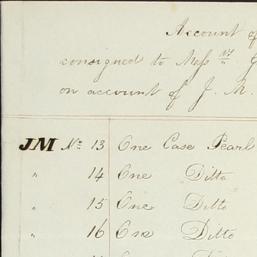 Account of
consigned to Mess<sup>rs</sup> G
on account of J. M.
JM No. 13 One Case Pearl
" 14 One Ditto
" 15 One Ditto
" 16 One Ditto